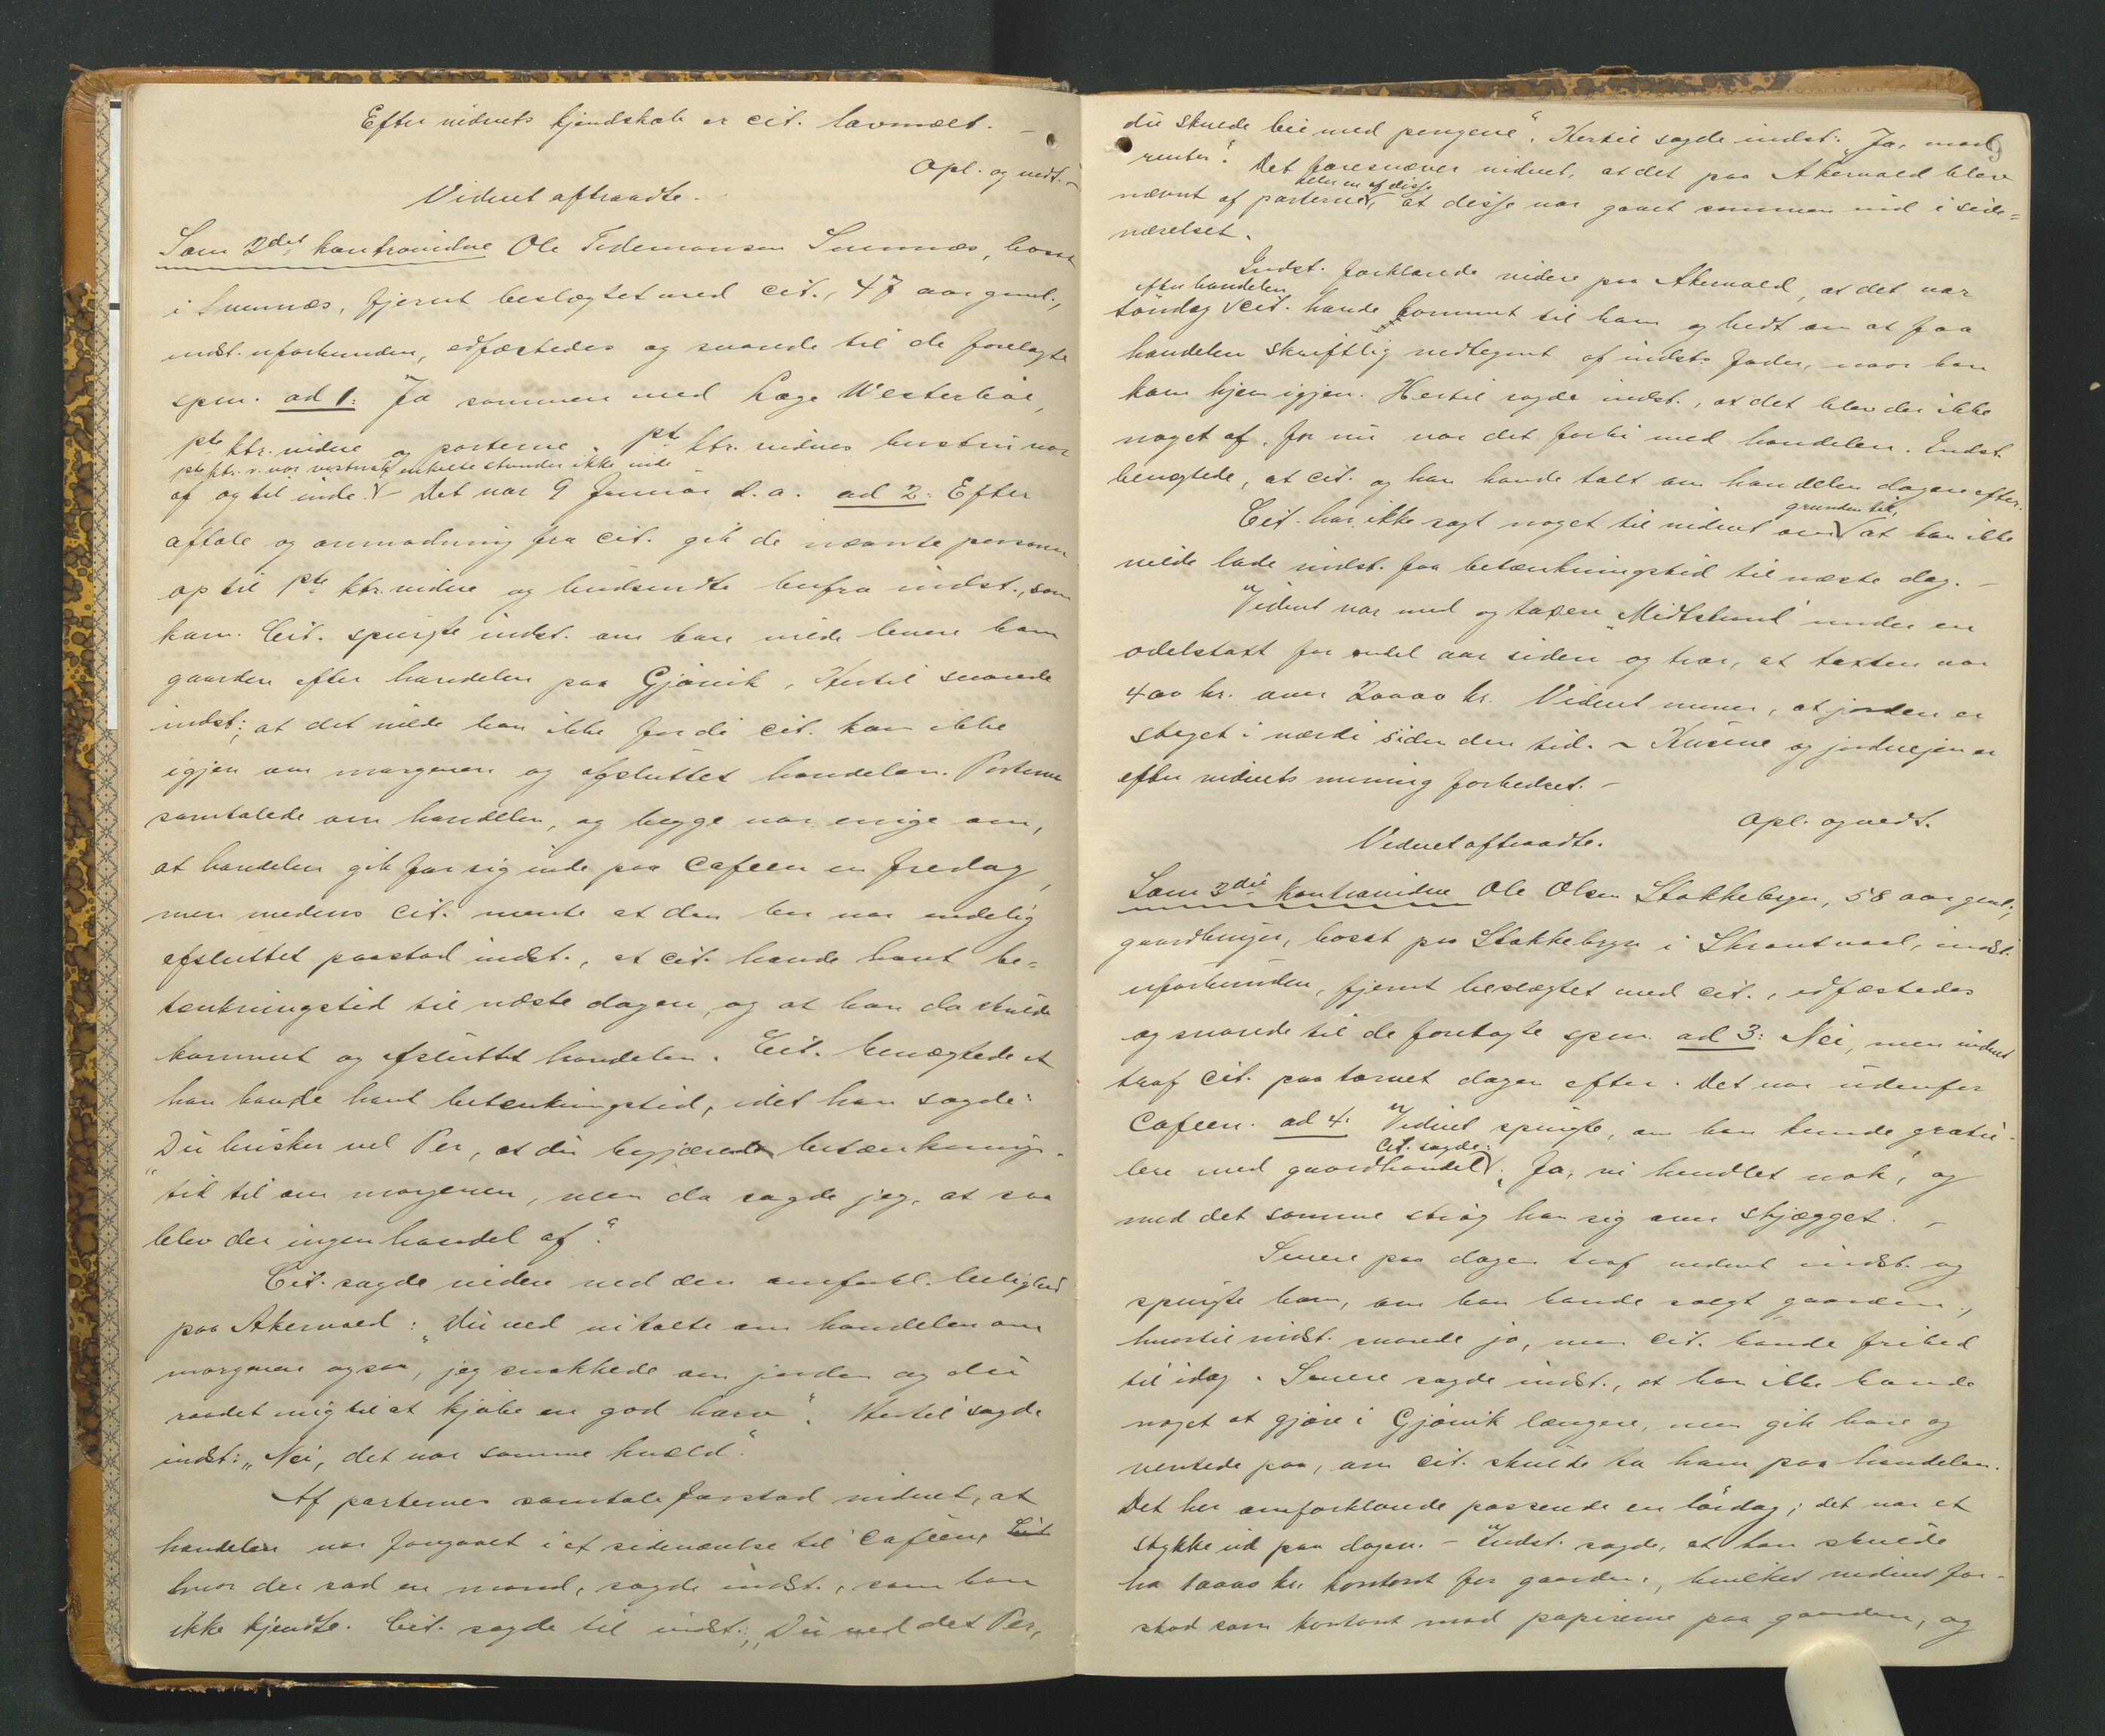 Efter vidnets kjendskab er cit. lavmælt. –
Opl. og vedt. –
Vidnet aftraadte.
Som 2det kontravidne Ole Tidemansen Sumnæs, bosat
i Sumnæs, fjernt beslægtet med cit., 47 aar gml.,
indst. uforbunden, edfæstedes og svarede til de forelagte
spm. ad 1: Ja sammen med Læge Westerbøe,
pte ktr. vidne og parterne. pte ktr. vidnes hustru var
pte ktr. v. var vistnok enkelte stunder ikke inde
af og til inde. V – Det var 9 Januar d.a. ad 2: Efter
aftale og anmodning fra cit. gik de nævnte personer
op til 1ste ktr. vidne og budsendte herfra indst., som
kom. Cit. spurgte indst. om han vilde levere ham
gaarden efter handelen paa Gjøvik, Hertil svarede
indst.; at det vilde han ikke fordi cit. kom ikke
igjen om morgenen og afsluttet handelen. Parterne
samtalede om handelen, og begge var enige om,
at handelen gik for sig inde paa Cafeen en fredag,
men medens cit. mente at den her var endelig
afsluttet paastod indst., at cit. havde havt be-
tænkningstid til næste dagen, og at han da skulde
kommet og afsluttet handelen. Cit. benægtede at
han havde havt betenkningstid, idet han sagde:
"Du husker vel Per, at du begjærede betænknings-
tid til om morgenen, men da sagde jeg, at saa
blev der ingen handel af".
Cit. sagde videre ved den omforkl. leilighed
paa Akervold: "Du ved vi talte om handelen om
morgenen ogsaa, jeg snakkede om jorden og du
raadet mig til at kjøbe en god harv". Hertil sagde
indst: "Nei, det var samme kveld."
Af parternes samtale forstod vidnet, at
handelen var foregaaet i et sideværelse til Cafeen, Cit
hvor der sad en mand, sagde indst., som han
ikke kjendte. Cit. sagde til indst.; "Du ved det Per,
9
du skulde bie med pengene". Hertil sagde indst: "Ja, mod
renter". Det foresvæver vidnet, at det paa Akervold blev
eller en af disse
nævnt af parterne V, at disse var gaaet sammen ind i side-
værelset.
Indst. forklarede videre paa Akervold, at det var
efter handelen
søndag V cit. havde kommet til ham og bedt om at faa
handelen skriftlig nedtegnet af indst.s fader, naar han
kom hjem igjen. Hertil sagde indst., at det blev der ikke
noget af, for nu var det forbi med handelen. Indst.
benegtede, at cit. og han havde talt om handelen dagen efter.
grunden til,
Cit. har ikke sagt noget til vidnet om V at han ikke
vilde lade indst. faa betænkningstid til næste dag. –
Vidnet var med og taxere "Midtstuml" under en
odelstaxt for endel aar siden og tror, at taxten var
400 kr. over 20000 kr. Vidnet mener, at jorden er
steget i værdi siden den tid. – Husene og jordveien er
efter vidnets mening forbedret. –
Opl. og vedt.
Vidnet aftraadte.
Som 3die kontravidne Ole Olsen Stakkebryn, 58 aar gml.,
gaardbruger, bosat paa Stakkebryn i Skrautvaal, indst.
uforbunden, fjernt beslægtet med cit., edfæstedes
og svarede til de foretagte spm. ad 3: Nei, men vidnet
traf cit. paa torvet dagen efter. Det var udenfor
Cafeen. ad 4: Vidnet spurgte, om han kunde gratu-
Cit. sagde:
lere med gaardhandel V. "Ja, vi hendlet nok", og
med det samme strøg han sig over skjægget. –
Senere paa dagen traf vidnet indst. og
spurgte ham, om han havde solgt gaarden,
hvortil indst. svarede jo, men cit. havde frihed
til idag. Senere sagde indst., at han ikke havde
noget at gjøre i Gjøvik længere, men gik bare og
ventede paa, om cit. skulde ta ham paa handelen.
Det her omforklarede passerede en lørdag; det var et
stykke ud paa dagen. – Indst. sagde, at han skulde
ha 10000 kr. kontant for gaarden, hvilket vidnet for-
stod som kontant mod papirerne paa gaarden, og